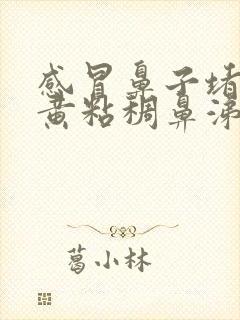 感冒鼻子堵
黄粘稠鼻涕
葛小林